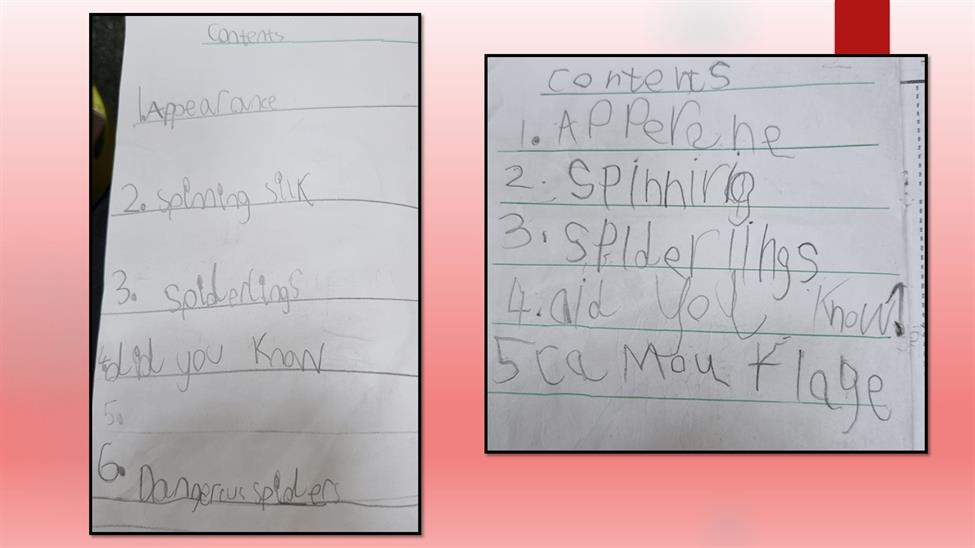 Contents
1. Appearance
2. Spinning silk
3. Spiderlings
4. did you know
5.
6. Dangerous spiders
contents
1. APPerene
2. Spinning
3. spiderlings
4. did you know?
5 camouflage